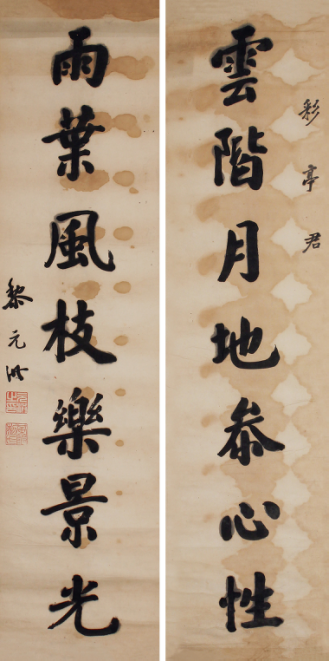 彩亭君
雲階月地叅心性
雨葉風枝樂景光
黎元洪